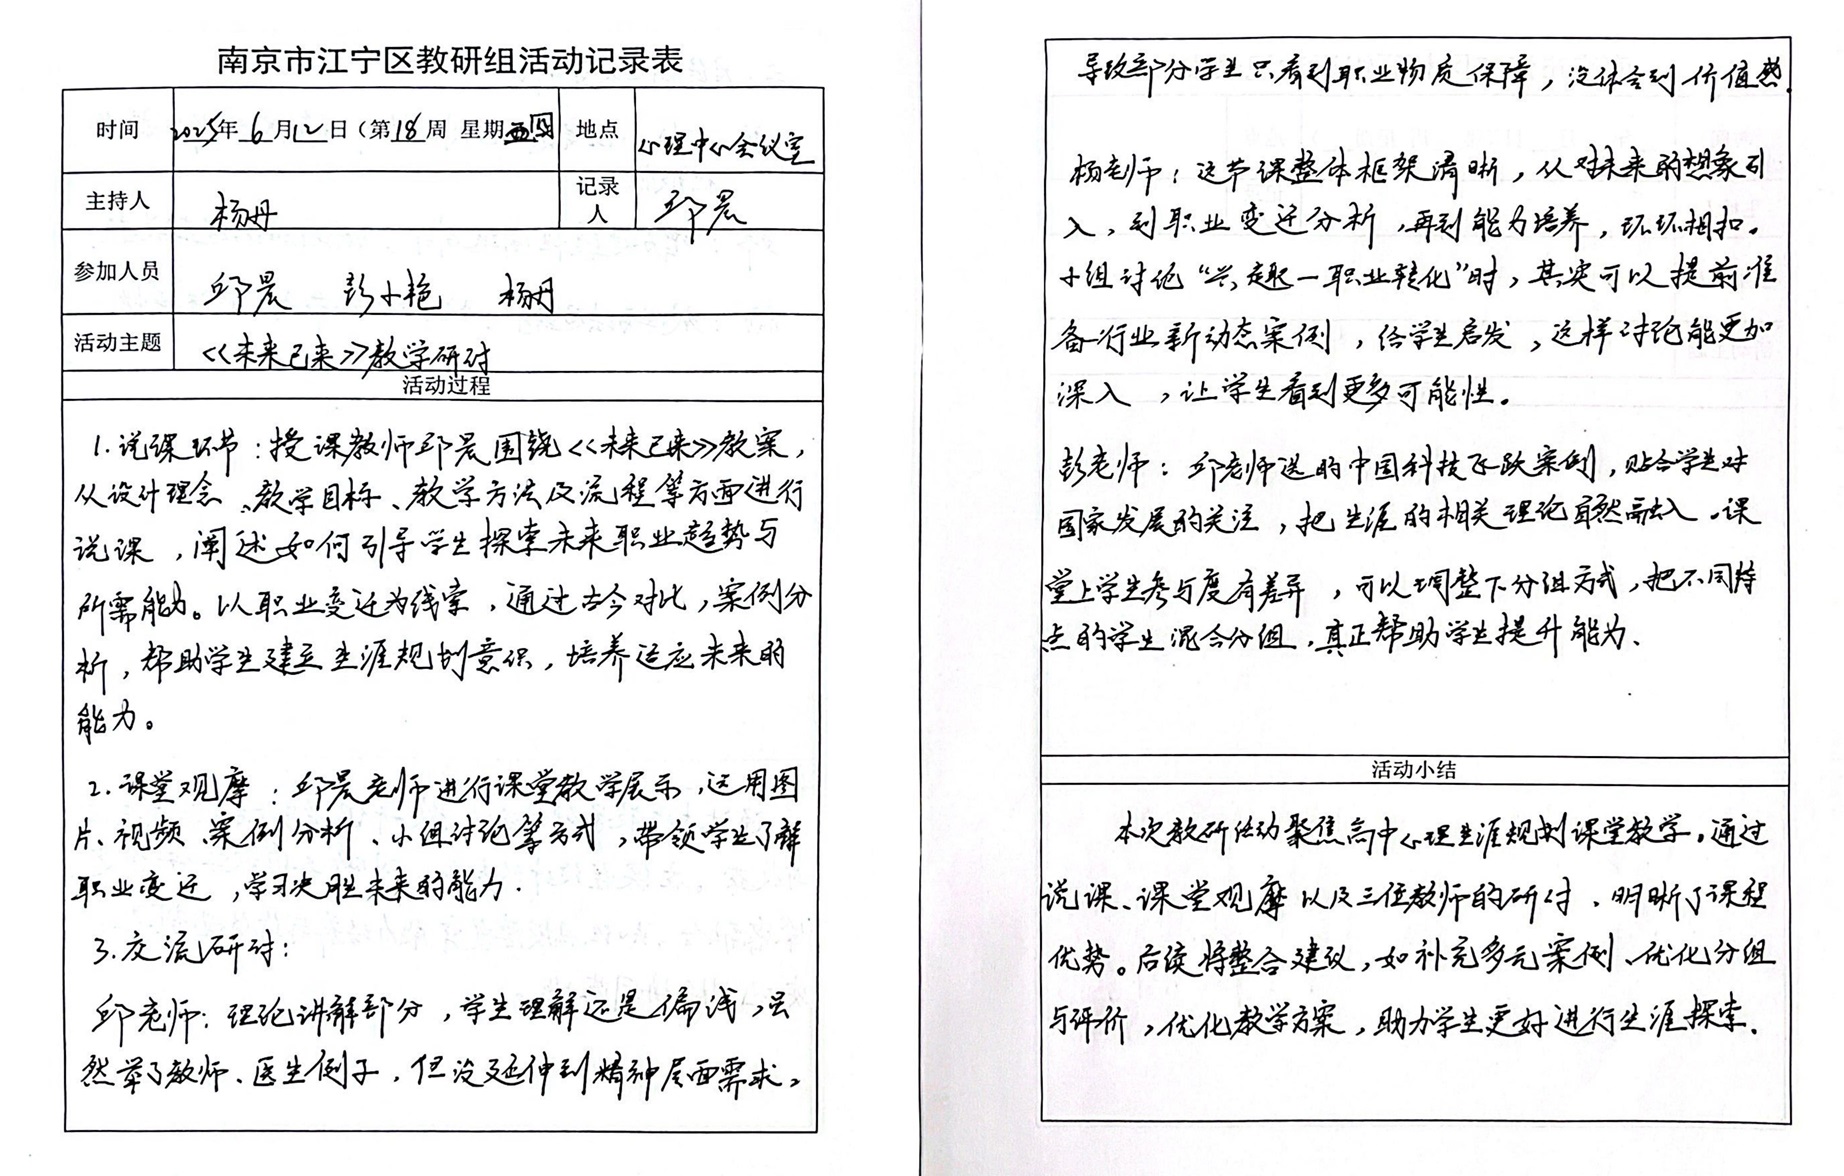 南京市江宁区教研组活动记录表
时间 2025年6月12日（第18周 星期四 地点 心理中心会议室
主持人 杨丹 记录人 邱晨
参加人员 邱晨 彭小艳 杨丹
活动主题 《未来已来》教学研讨
活动过程
1.说课环节：授课教师邱晨围绕《未来已来》教案，
从设计理念、教学目标、教学方法及流程等方面进行
说课，阐述如何引导学生探索未来职业趋势与
所需能力。以职业变迁为线索，通过古今对比，案例分
析，帮助学生建立生涯规划意识，培养适应未来的
能力。
2.课堂观摩：邱晨老师进行课堂教学展示，运用图
片、视频、案例分析、小组讨论等方式，带领学生了解
职业变迁，学习决胜未来的能力.
3.交流研讨：
邱老师：理论讲解部分，学生理解还是偏浅，虽
然举了教师、医生例子，但没延伸到精神层面需求，
导致部分学生只看到职业物质保障，没体会到价值感.
杨老师：这节课整体框架清晰，从对未来的想象引
入，到职业变迁分析，再到能力培养，环环相扣。
小组讨论“兴趣—职业转化”时，其实可以提前准
备行业新动态案例，给学生启发，这样讨论能更加
深入，让学生看到更多可能性。
彭老师：邱老师选的中国科技飞跃案例，贴合学生对
国家发展的关注，把生涯的相关理论自然融入。课
堂上学生参与度有差异，可以调整下分组方式，把不同特
点的学生混合分组，真正帮助学生提升能力.
活动小结
本次教研活动聚焦高中心理生涯规划课堂教学。通过
说课、课堂观摩以及三位教师的研讨，明晰了课程
优势。后续将整合建议，如补充多元案例、优化分组
与评价，优化教学方案，助力学生更好进行生涯探索.